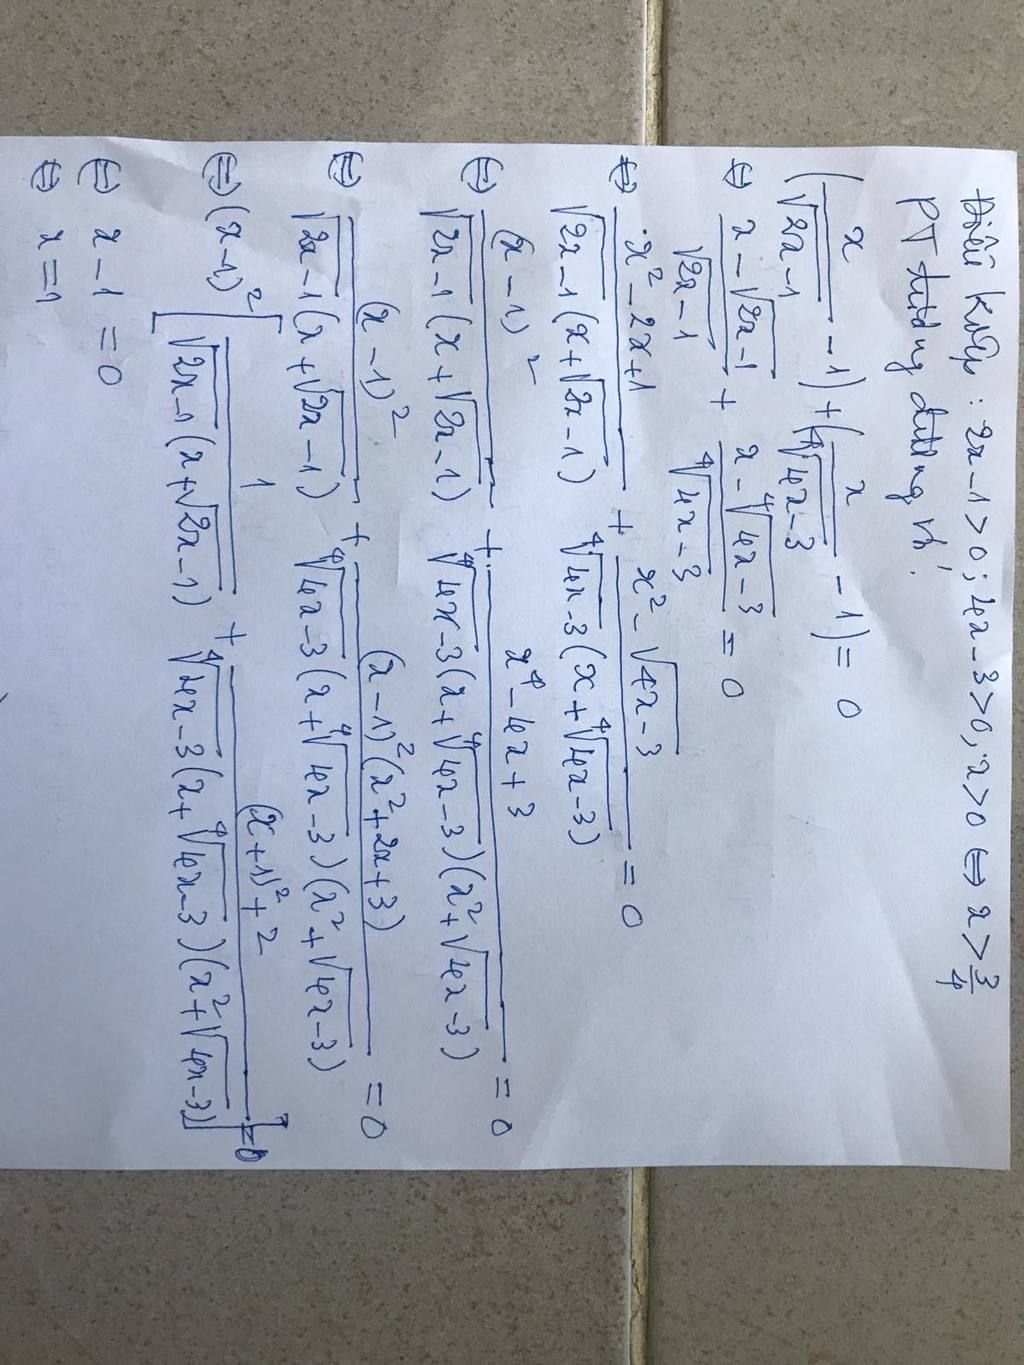 Điều kiện : 2x-1>0 ; 4x-3>0 ; x>0 ⇔ x > 3/4
PT tương đương với
(x/√(2x-1) - 1) + (x/⁴√(4x-3) - 1) = 0
⇔ (x-√(2x-1))/√(2x-1) + (x-⁴√(4x-3))/⁴√(4x-3) = 0
⇔ (x²-2x+1)/(√(2x-1)(x+√(2x-1))) + (x²-√(4x-3))/(⁴√(4x-3)(x+⁴√(4x-3))) = 0
⇔ (x-1)²/(√(2x-1)(x+√(2x-1))) + (x⁴-4x+3)/(⁴√(4x-3)(x+⁴√(4x-3))(x²+√(4x-3))) = 0
⇔ (x-1)²/(√(2x-1)(x+√(2x-1))) + (x-1)²(x²+2x+3)/(⁴√(4x-3)(x+⁴√(4x-3))(x²+√(4x-3))) = 0
⇔ (x-1)² [1/(√(2x-1)(x+√(2x-1))) + ((x+1)²+2)/(⁴√(4x-3)(x+⁴√(4x-3))(x²+√(4x-3)))] = 0
⇔ x-1 = 0
⇔ x = 1